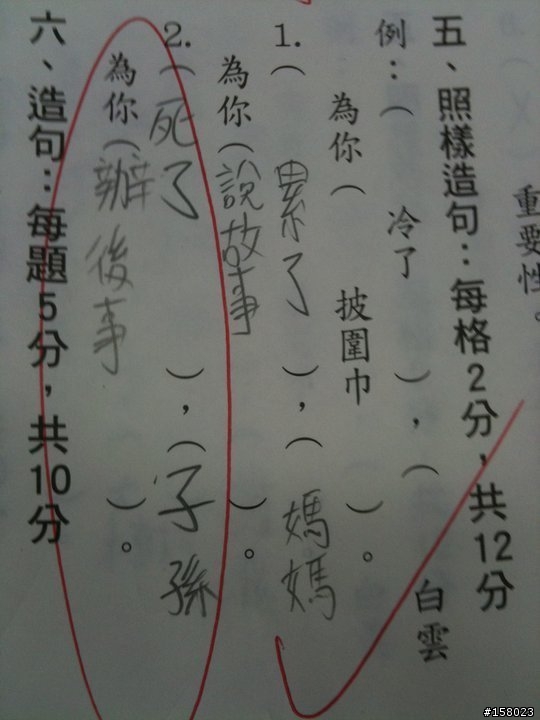 重要性。
五、照樣造句：每格2分，共12分
例：（ 冷了 ），（ 白雲
為你（ 披圍巾 ）。
1.（ 累了 ），（ 媽媽
為你（說故事 ）。
2.（死了 ），（子孫
為你（辦後事 ）。
六、造句：每題5分，共10分
#158023